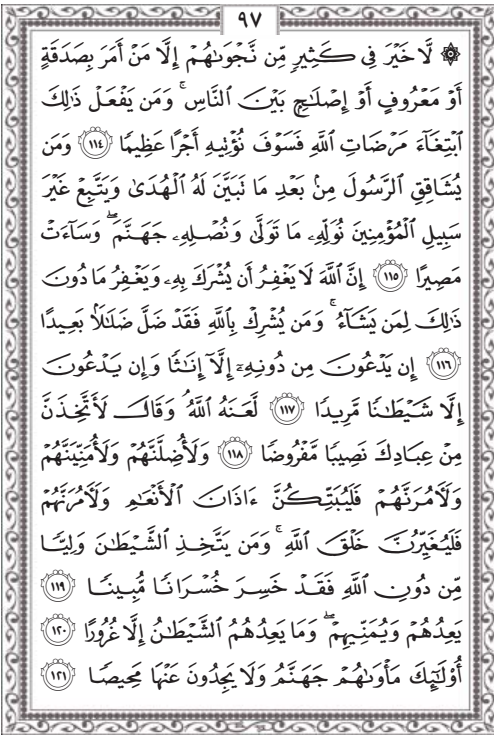 ٩٧
۞ لَّا خَيْرَ فِي كَثِيرٍ مِّن نَّجْوَىٰهُمْ إِلَّا مَنْ أَمَرَ بِصَدَقَةٍ
أَوْ مَعْرُوفٍ أَوْ إِصْلَٰحٍۭ بَيْنَ ٱلنَّاسِ ۚ وَمَن يَفْعَلْ ذَٰلِكَ
ٱبْتِغَآءَ مَرْضَاتِ ٱللَّهِ فَسَوْفَ نُؤْتِيهِ أَجْرًا عَظِيمًا ﴿١١٤﴾ وَمَن
يُشَاقِقِ ٱلرَّسُولَ مِنۢ بَعْدِ مَا تَبَيَّنَ لَهُ ٱلْهُدَىٰ وَيَتَّبِعْ غَيْرَ
سَبِيلِ ٱلْمُؤْمِنِينَ نُوَلِّهِۦ مَا تَوَلَّىٰ وَنُصْلِهِۦ جَهَنَّمَ ۖ وَسَآءَتْ
مَصِيرًا ﴿١١٥﴾ إِنَّ ٱللَّهَ لَا يَغْفِرُ أَن يُشْرَكَ بِهِۦ وَيَغْفِرُ مَا دُونَ
ذَٰلِكَ لِمَن يَشَآءُ ۚ وَمَن يُشْرِكْ بِٱللَّهِ فَقَدْ ضَلَّ ضَلَٰلًۢا بَعِيدًا
﴿١١٦﴾ إِن يَدْعُونَ مِن دُونِهِۦٓ إِلَّآ إِنَٰثًا وَإِن يَدْعُونَ
إِلَّا شَيْطَٰنًا مَّرِيدًا ﴿١١٧﴾ لَّعَنَهُ ٱللَّهُ ۘ وَقَالَ لَأَتَّخِذَنَّ
مِنْ عِبَادِكَ نَصِيبًا مَّفْرُوضًا ﴿١١٨﴾ وَلَأُضِلَّنَّهُمْ وَلَأُمَنِّيَنَّهُمْ
وَلَءَامُرَنَّهُمْ فَلَيُبَتِّكُنَّ ءَاذَانَ ٱلْأَنْعَٰمِ وَلَءَامُرَنَّهُمْ
فَلَيُغَيِّرُنَّ خَلْقَ ٱللَّهِ ۚ وَمَن يَتَّخِذِ ٱلشَّيْطَٰنَ وَلِيًّا
مِّن دُونِ ٱللَّهِ فَقَدْ خَسِرَ خُسْرَانًا مُّبِينًا ﴿١١٩﴾
يَعِدُهُمْ وَيُمَنِّيهِمْ ۖ وَمَا يَعِدُهُمُ ٱلشَّيْطَٰنُ إِلَّا غُرُورًا ﴿١٢٠﴾
أُو۟لَٰٓئِكَ مَأْوَىٰهُمْ جَهَنَّمُ وَلَا يَجِدُونَ عَنْهَا مَحِيصًا ﴿١٢١﴾